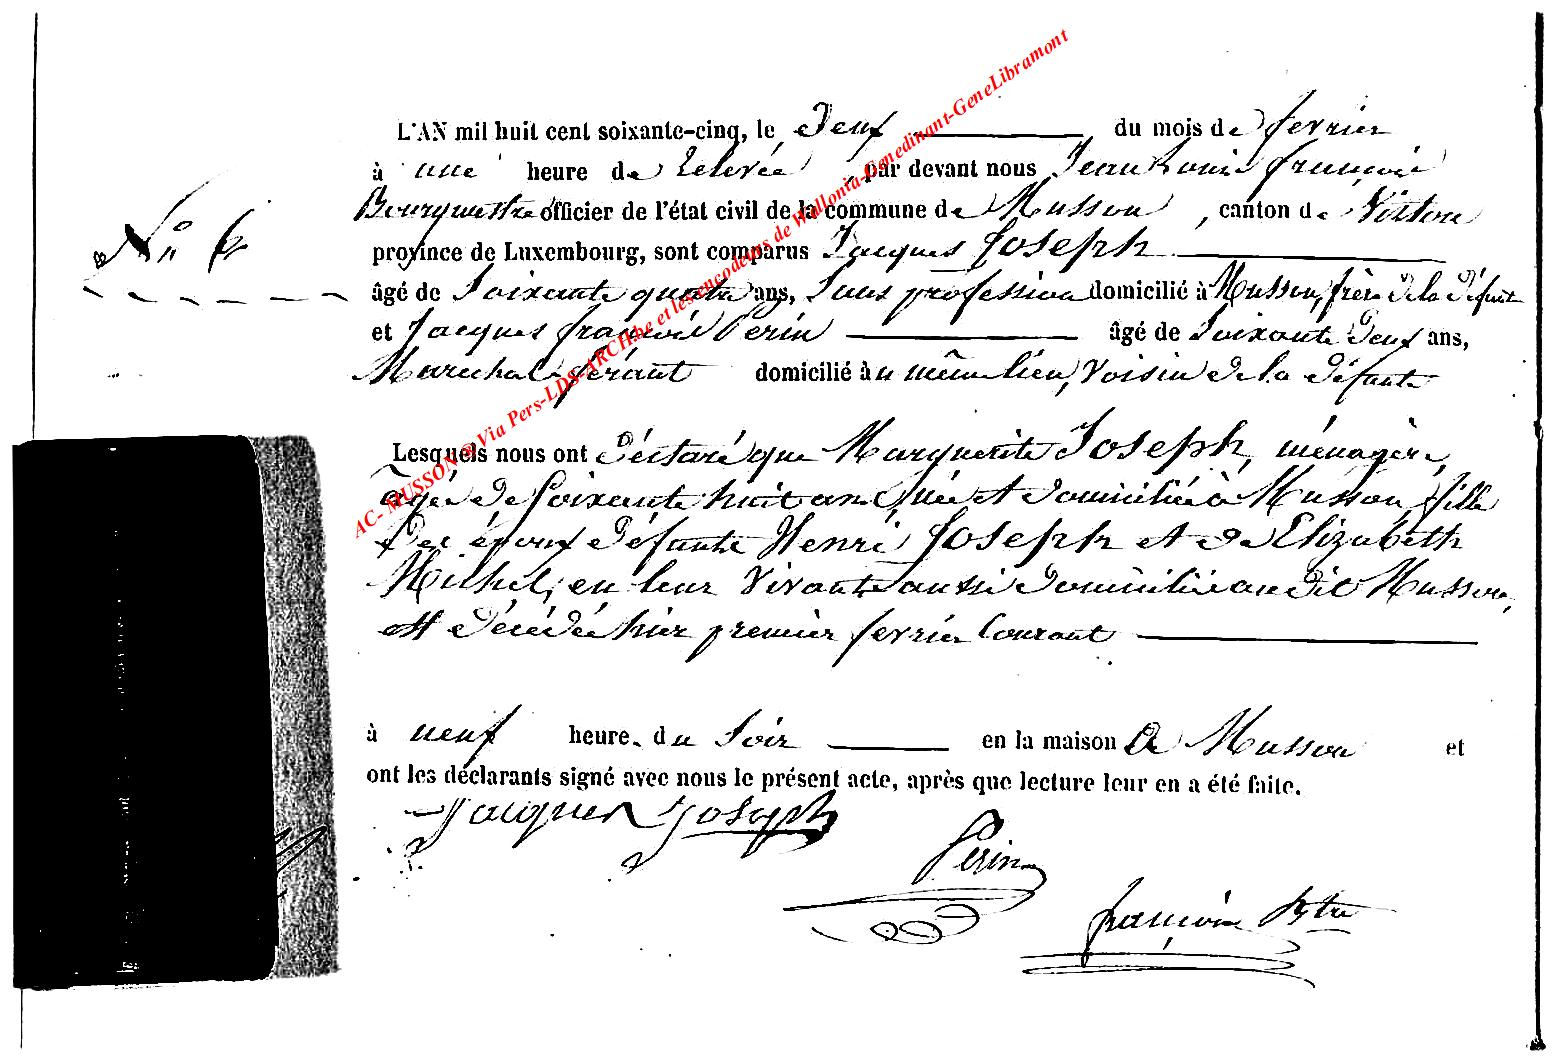 L'AN mil huit cent soixante-cinq, le deux du mois de février
à une heure de relevée, par devant nous Jean Louis françois
Bourgmestre officier de l'état civil de la commune de Musson, canton de Virton
N° 6
province de Luxembourg, sont comparus Jacques Joseph
âgé de Soixante quatre ans, Sans profession domicilié à Musson, frère de la défunte
et Jacques françois Perin âgé de Soixante deux ans,
Marechal férant domicilié au même lieu, Voisin de la défunte
Lesquels nous ont déclaré que Marguerite Joseph, ménagère,
âgée de Soixante huit ans, née et domiciliée à Musson, fille
des époux défunts Henri Joseph et de Elizabeth
Michel, en leur vivants aussi domiciliés audit Musson,
est décédée hier premier février Courant
à neuf heure. du Soir en la maison à Musson et
ont les déclarants signé avec nous le présent acte, après que lecture leur en a été faite.
Jacques Joseph
Perin
françois Bgtre
AC- MUSSON @ Via Pers-LDS-ARCH.be et les encodeurs de Wallonia-Genedinant-GeneLibramont